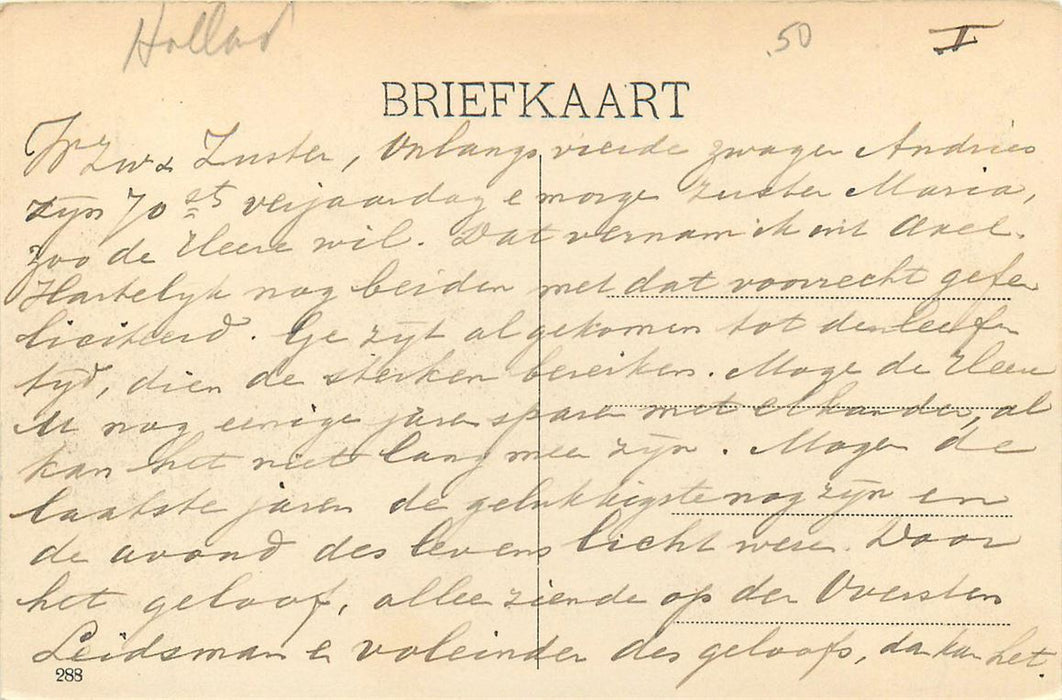 Hollad
.50
I
BRIEFKAART
Zw & Zuster, Onlangs vierde zwager Andries
zijn 70 st verjaardag e morge zuster Maria,
zoo de Heere wil. Dat vernam ik uit Axel.
Hartelyk nog beiden met dat voorrecht gefe
liciteerd. Ge zijt al gekomen tot den leef
tyd, dien de sterken bereiken. Moge de Heere
U nog eenige jaren sparen met elkander, al
kan het niet lang meer zijn. Mogen de
laatste jaren de gelukkigste nog zijn en
de avond des levens licht wezen. Door
het geloof, alleen ziende op den Oversten
Leidsman en voleinder des geloofs, dan kan het.
288